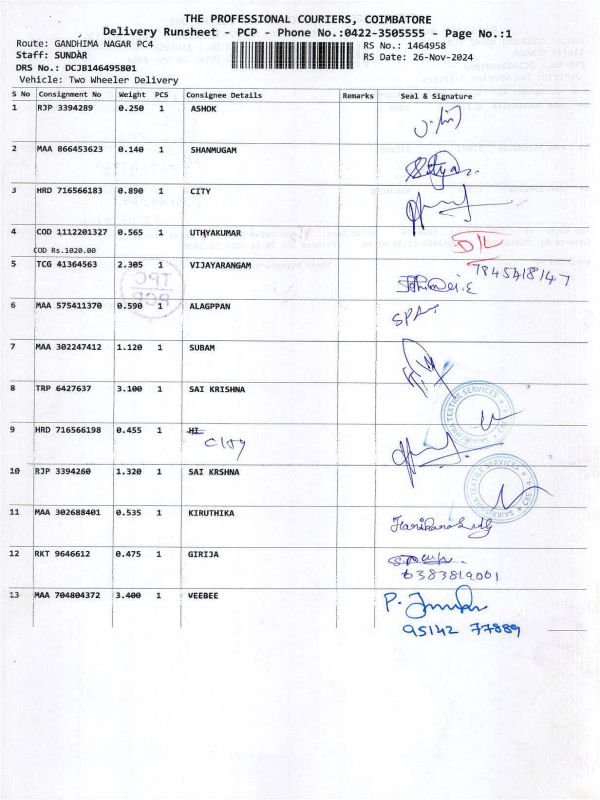 THE PROFESSIONAL COURIERS, COIMBATORE
Delivery Runsheet - PCP - Phone No.:0422-3505555 - Page No.:1
Route: GANDHIMA NAGAR PC4 RS No.: 1464958
Staff: SUNDAR RS Date: 26-Nov-2024
DRS No.: DCJB146495801
Vehicle: Two Wheeler Delivery
S No Consignment No Weight PCS Consignee Details Remarks Seal & Signature
1 RJP 3394289 0.250 1 ASHOK
2 MAA 866453623 0.140 1 SHANMUGAM
3 HRD 716566183 0.890 1 CITY
4 COD 1112201327 0.565 1 UTHYAKUMAR D/L
COD Rs.1020.00
5 TCG 41364563 2.305 1 VIJAYARANGAM 7845418147
TPC
PCP
6 MAA 575411370 0.590 1 ALAGPPAN
7 MAA 302247412 1.120 1 SUBAM
8 TRP 6427637 3.100 1 SAI KRISHNA
9 HRD 716566198 0.455 1 HI
City
10 RJP 3394260 1.320 1 SAI KRSHNA
11 MAA 302688401 0.535 1 KIRUTHIKA
12 RKT 9646612 0.475 1 GIRIJA
6383819001
13 MAA 704804372 3.400 1 VEEBEE
95142 77889